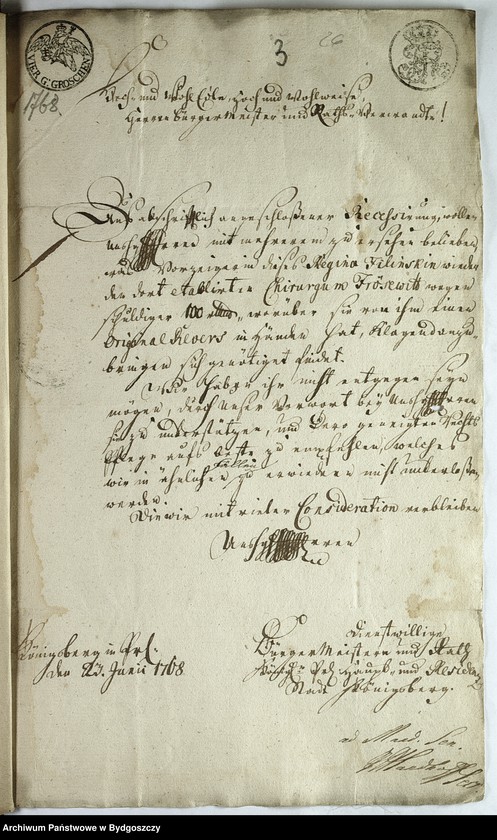 VIER G. GROSCHEN
3
26
1768.
Hoch- und Wohl Edle, Hoch und Wohlweise,
Herren BürgerMeister und Raths-Verwandte!
Aus abschriftlich angeschloßener Recessirung, wollen
mit mehrerem zu ersehen belieben
Vorzeigerin dieses Regina Filinskin wieder
den dort etablirten Chirurgum Frosewitz wegen
schuldiger 100 worüber sie von ihm einen
original Revers in Händen hat, klagend anzu
bringen sich genötiget findet.
Wir haben ihr nicht entgegen seyn
mögen, durch unser Vorwort bey
sie zu unterstützen, und Dero geneigten Rechts
Pflege aufs beste zu empfehlen, welches
wir in ähnlichen Fällen zu erwiedern nicht unterlaßen
werden.
Die wir mit vieler Consideration verbleiben
Königsberg in Pr:
den 23. Junii 1768.
dienstwillige
BürgerMeistere und Rath
Königl: Pr: Haupt- und Residenz
Stadt Königsberg.
Archiwum Państwowe w Bydgoszczy